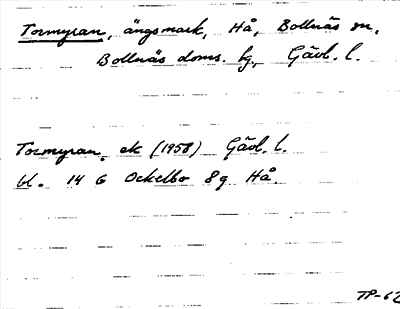 Tormyran, ängsmark, Hå, Bollnäs sn,
Bollnäs doms. hg, Gävl. l.
Tormyran, ek (1958) Gävl. l.
bl. 14 G Ockelbo 8g Hå.
TP-62